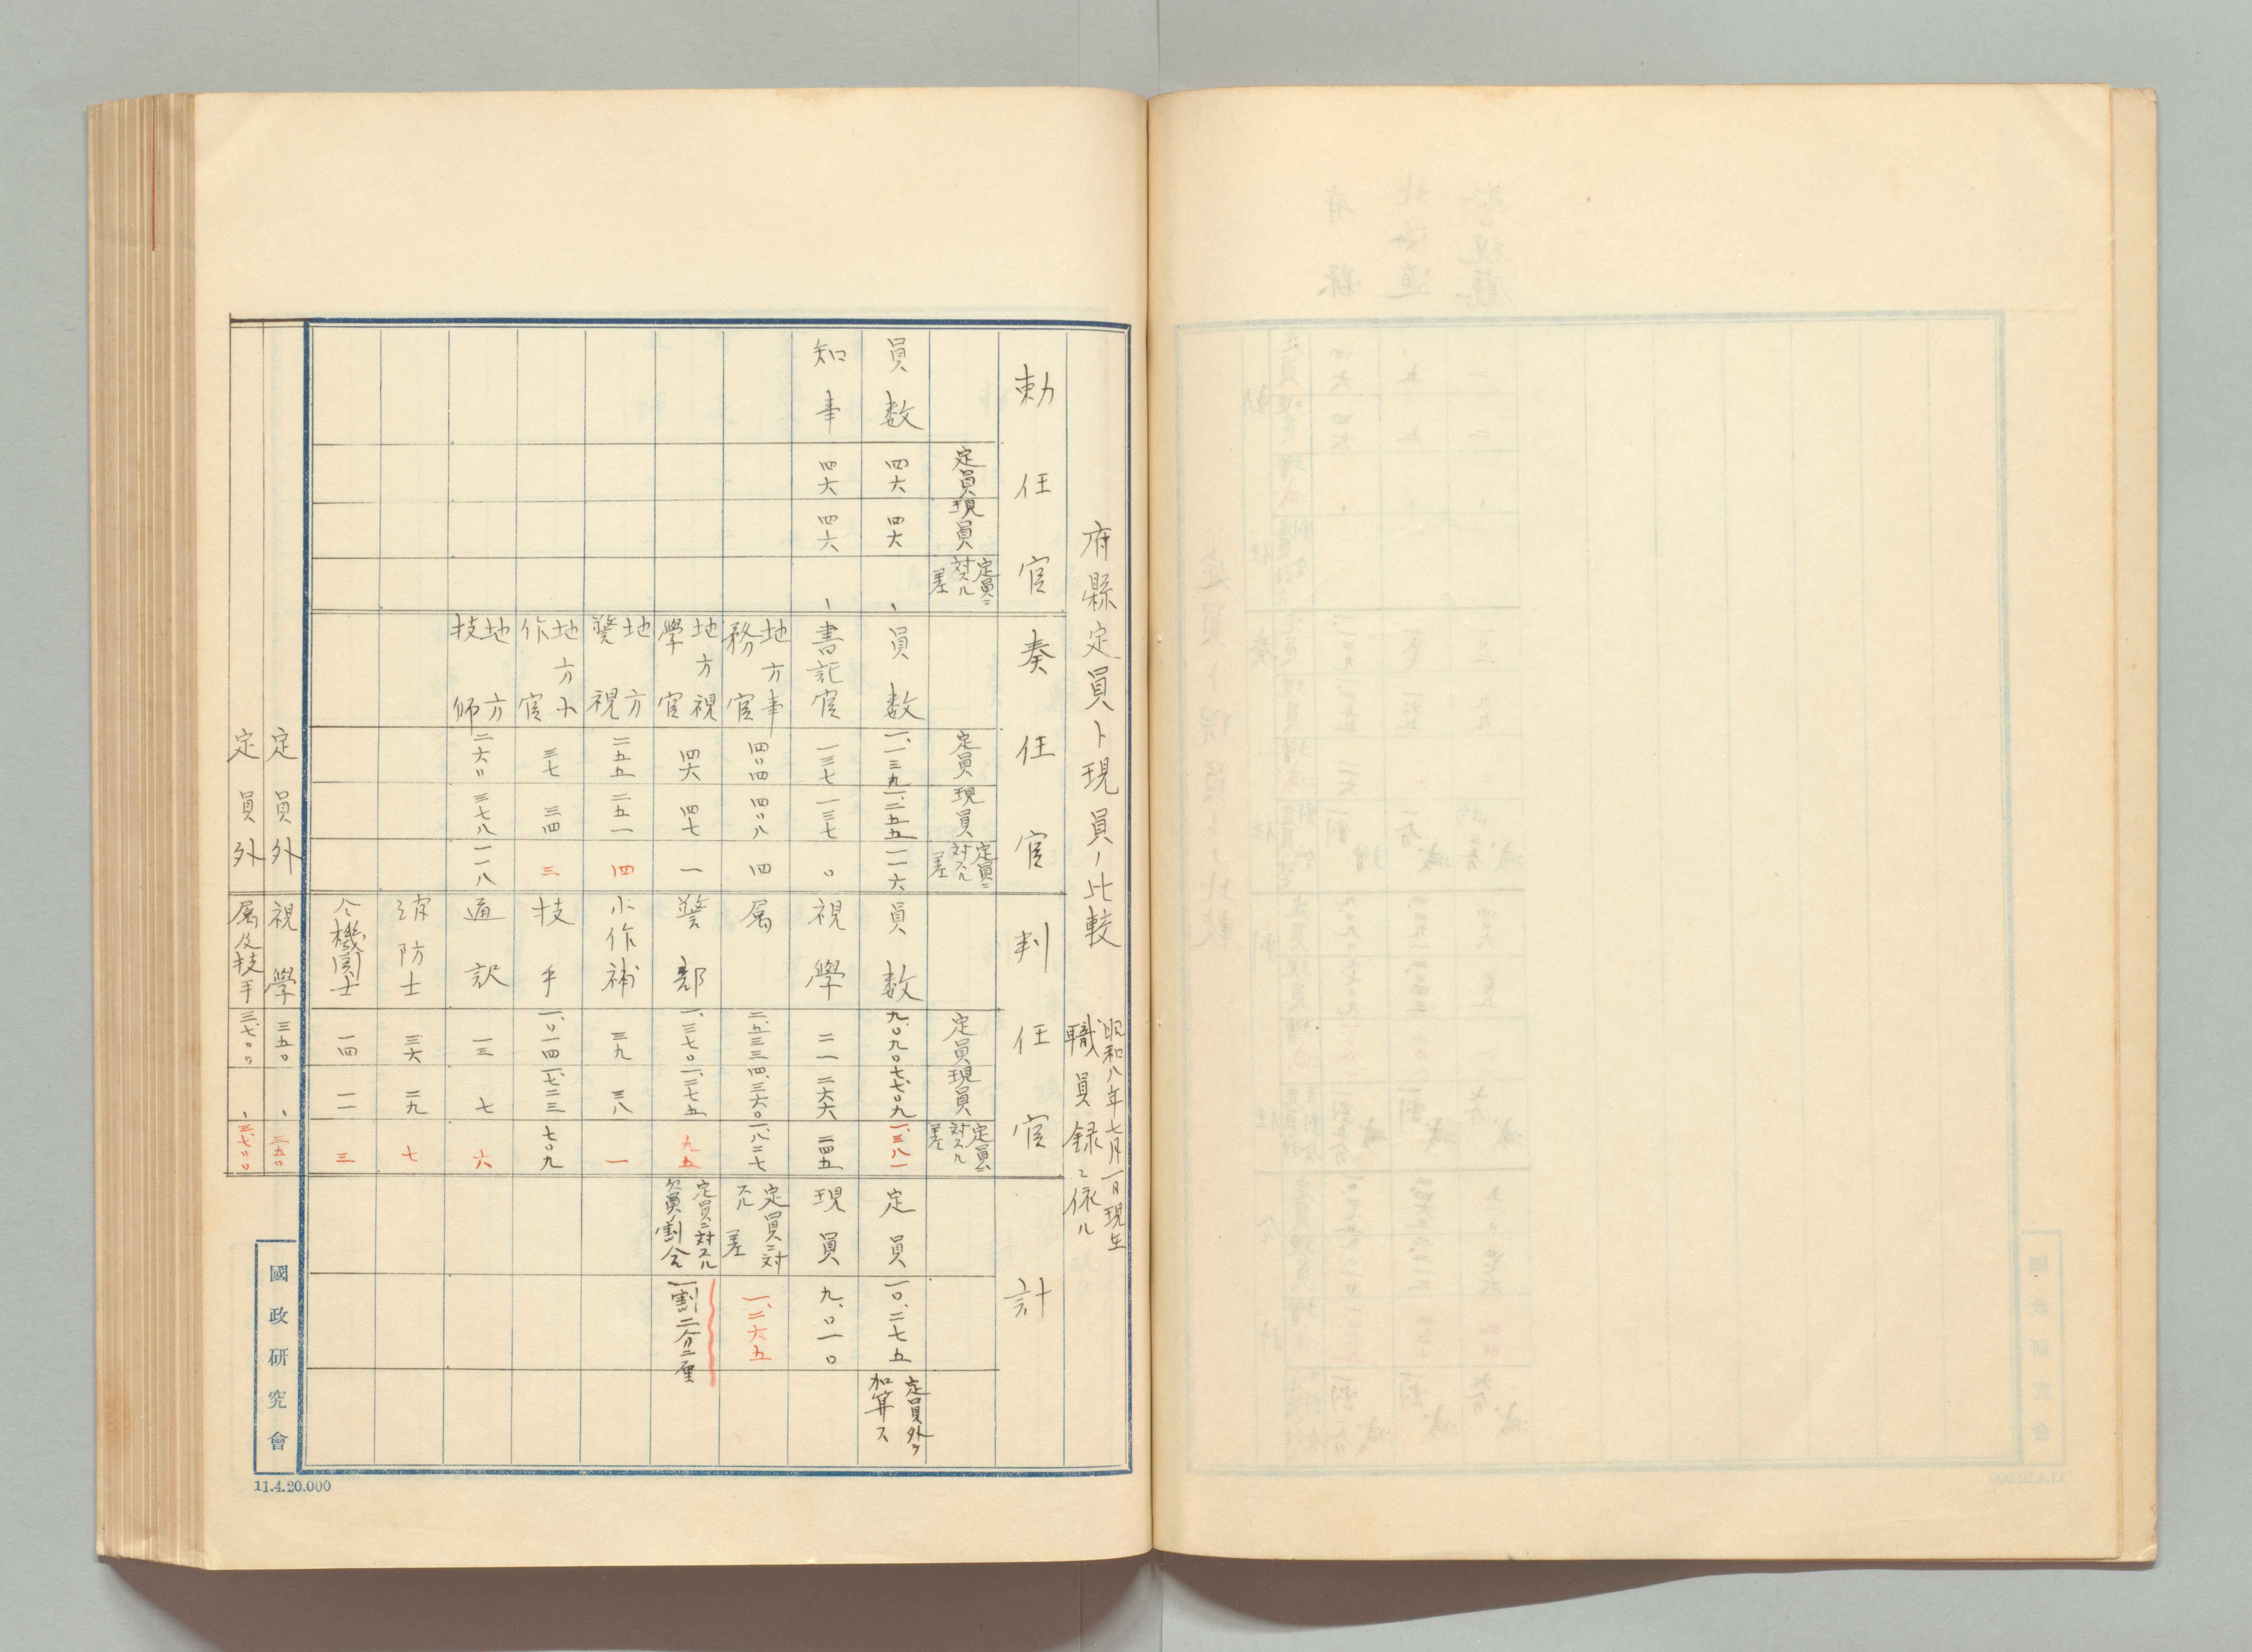 府縣定員ト現員ノ比較
昭和八年七月一日現在
職員録ニ依ル
勅任官 奏任官 判任官 計
定員 現員 定員ニ対スル差 定員 現員 定員ニ対スル差 定員 現員 定員ニ対スル差
員数 四六 四六 、 員数 一、一三九 一、二五五 一一六 員数 九、〇九〇 七、七〇九 一、三八一 定員 一〇、二七五 定員外ヲ加算ス
知事 四六 四六 、 書記官 一三七 一三七 〇 視學 二一 二六六 二四五 現員 九、〇一〇
地方事務官 四〇四 四〇八 四 属 二、五三三 四、三六〇 一、八二七 定員ニ対スル差 一、二六五
地方視學官 四六 四七 一 警部 一、三七〇 一、二七五 九五 定員ニ対スル欠員割合 一割二分二厘
地方警視 二五五 二五一 四 小作補 三九 三八 一
地方小作官 三七 三四 三 技手 一、〇一四 一、七二三 七〇九
地方技師 二六〇 三七八 一一八 通訳 一三 七 六
消防士 三六 二九 七
仝機関士 一四 一一 三
定員外 視學 三五〇 、 三五〇
定員外 属及技手 三、七〇〇 、 三、七〇〇
國政研究會
11.4.20.000